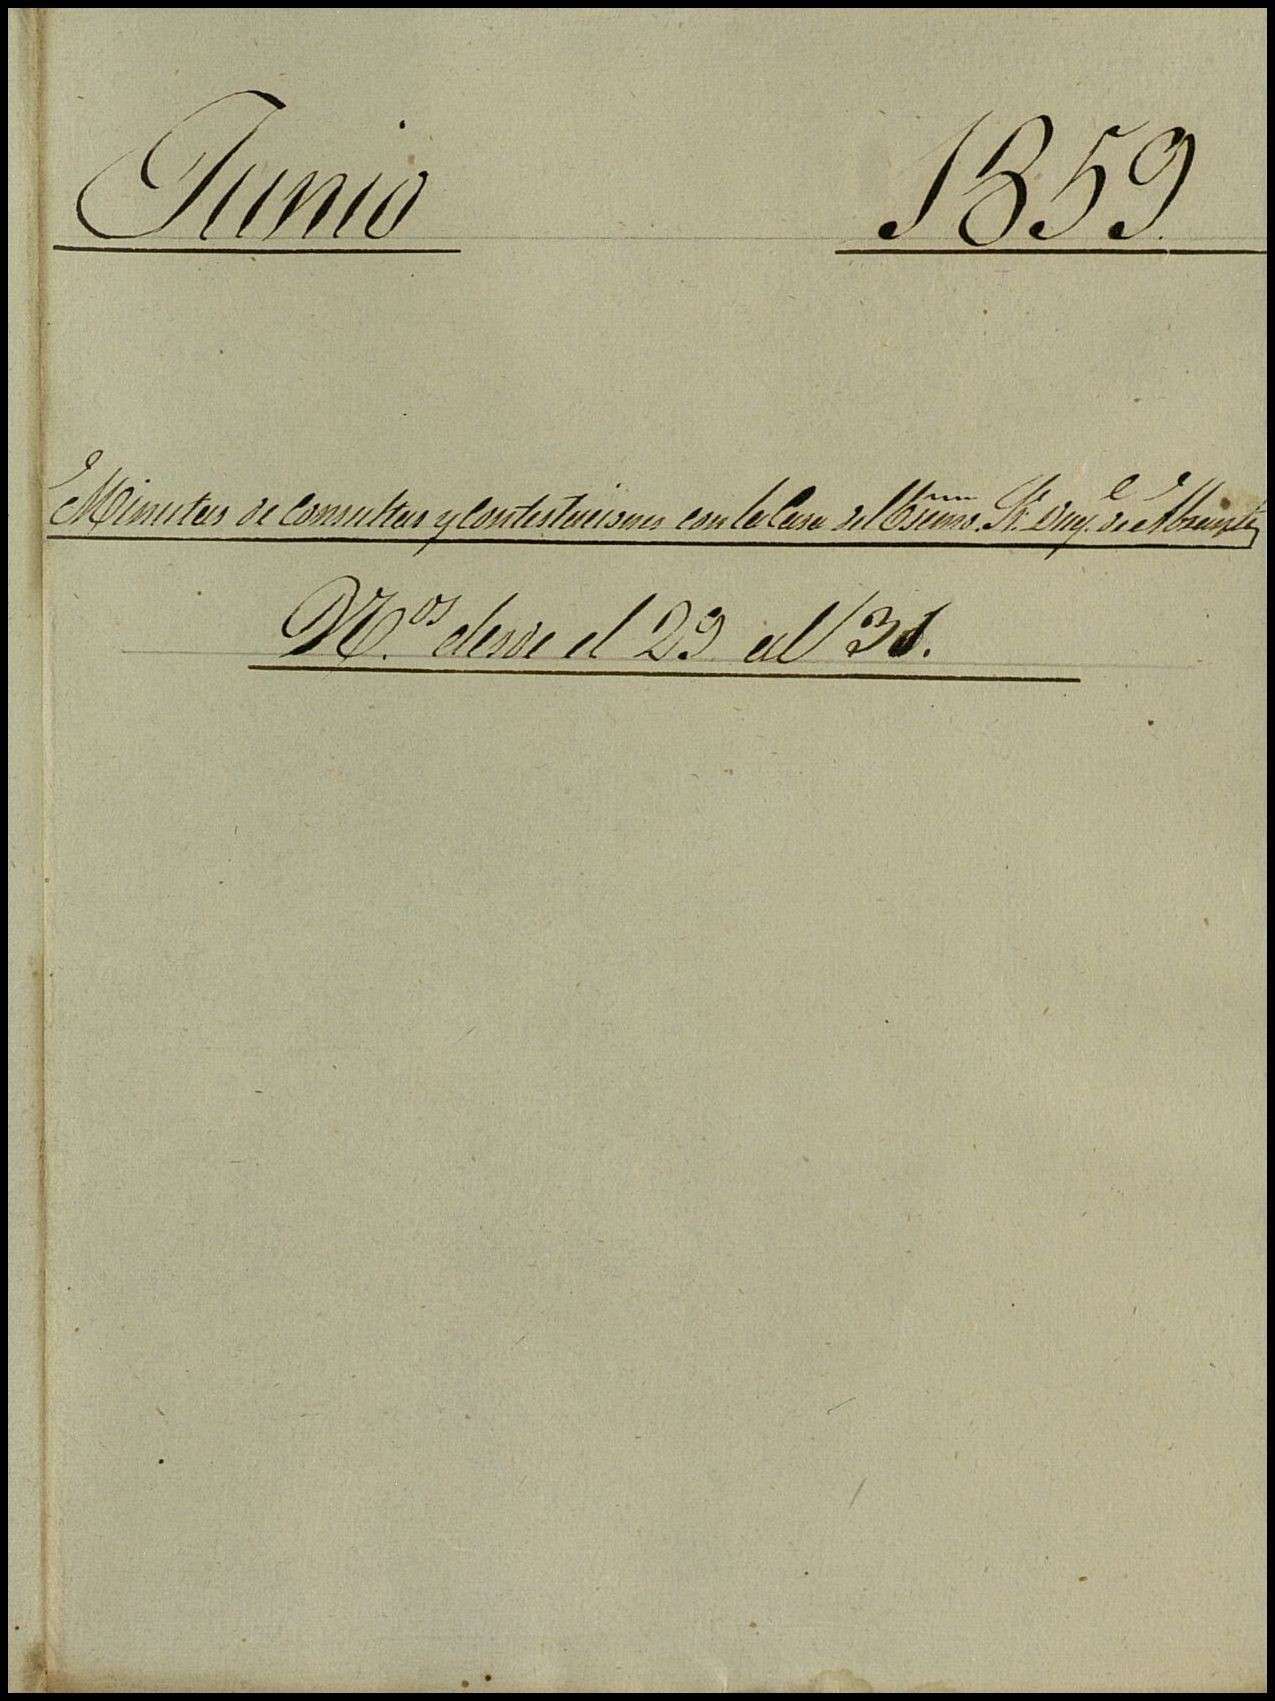 Junio 1859
Minutas de Consultas y Contestaciones con la Casa del Exmo. Sr. Duq.e de Abrantes
N.os desde el 29 al 31.